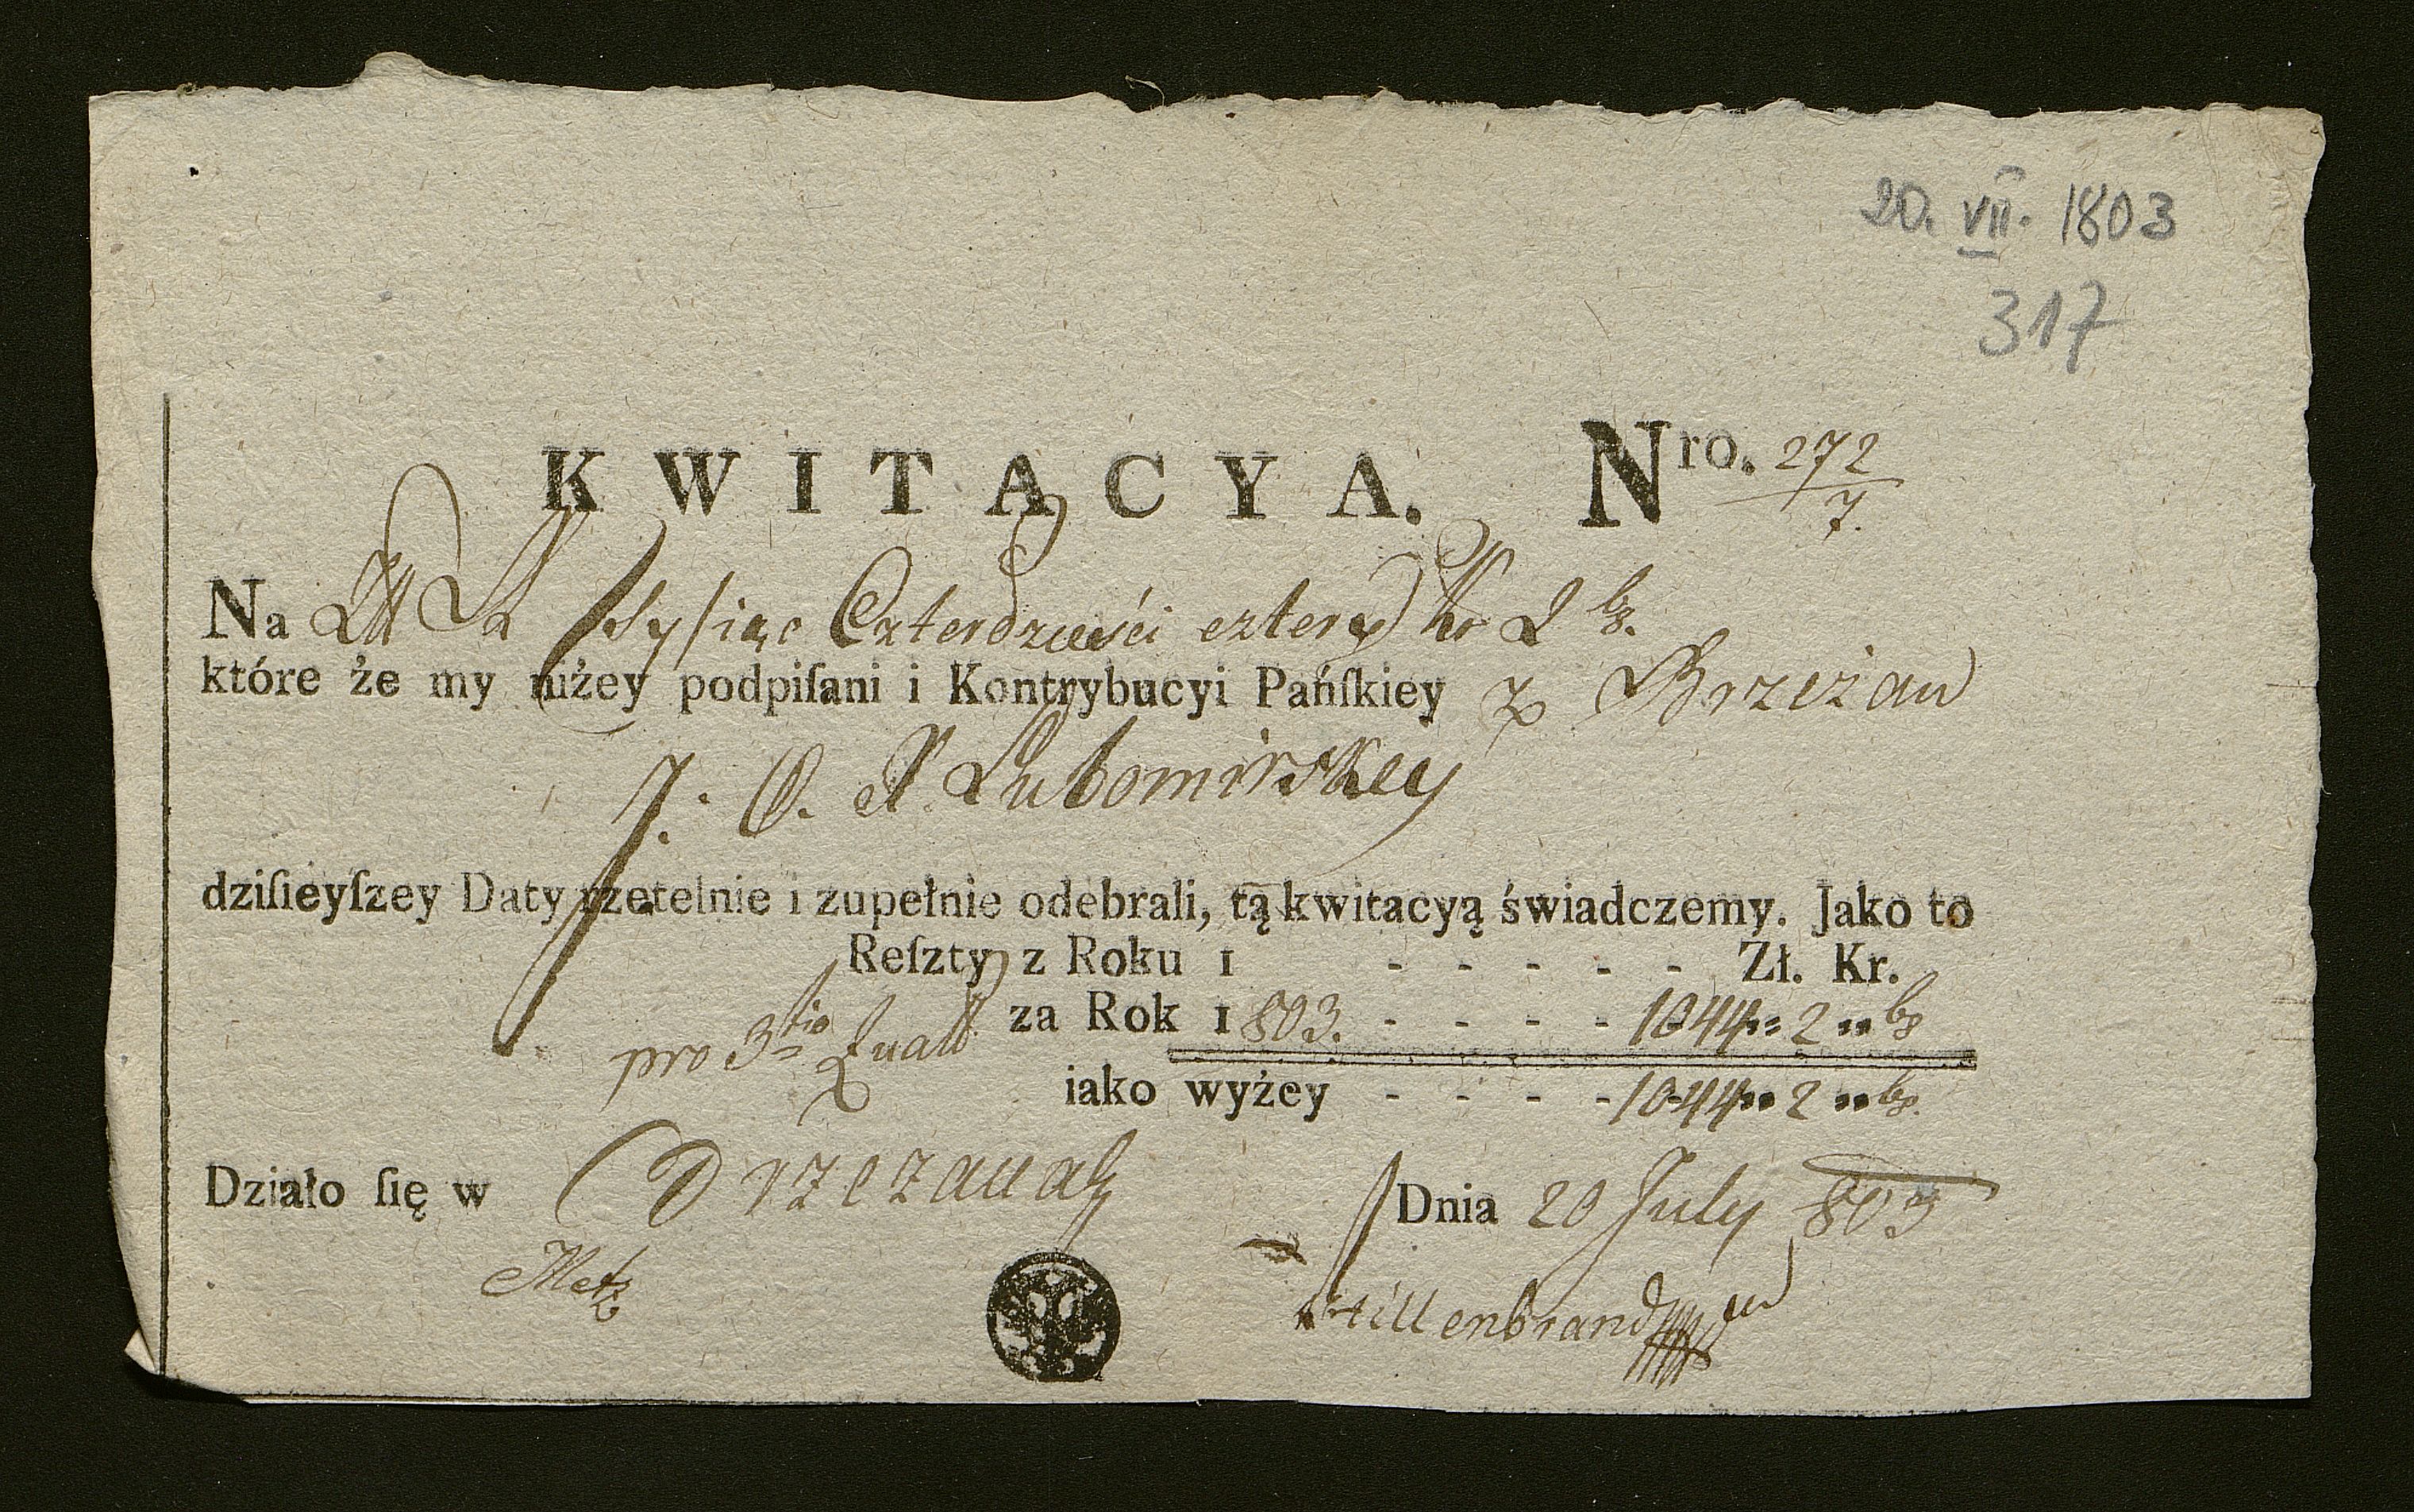 20. VII. 1803
317
KWITACYA. Nro. 272/7.
Na Tysiąc Czterdzieści cztery Kr 2
które że my niżey podpiſani i Kontrybucyi Pańſkiey z Brzeżan
J. O. X Lubomirskey
dziſieyſzey Daty rzetelnie i zupełnie odebrali, tą kwitacyą świadczemy. Jako to
Reſzty z Roku 1 - - - - - Zł. Kr.
pro 3tio Quart za Rok 1803. - - - - 1044 " 2 "
iako wyżey - - - - 1044 " 2 "
Działo ſię w Brzezanach Dnia 20 July 803
Metz Hillenbrand